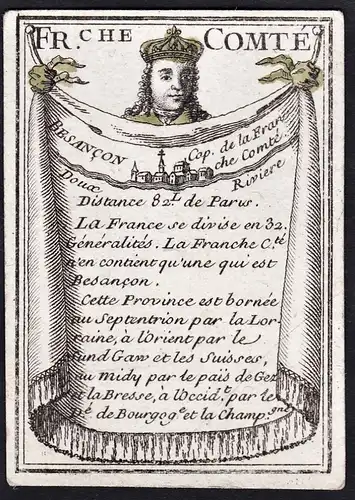 FR.CHE COMTÉ
BESANÇON Cap. de la Fran
che Comté.
Doux Riviere
Distance 82L de Paris.
La France se divise en 32.
Généralités. La Franche C.té
n'en contient qu'une qui est
Besançon.
Cette Province est bornée
au Septentrion par la Lor-
raine, à l'Orient par le
Sund Gaw et les Suisses,
au midy par le païs de Gex
et la Bresse, à l'Occid.t par le
D.é de Bourgog.e et la Champ.gne